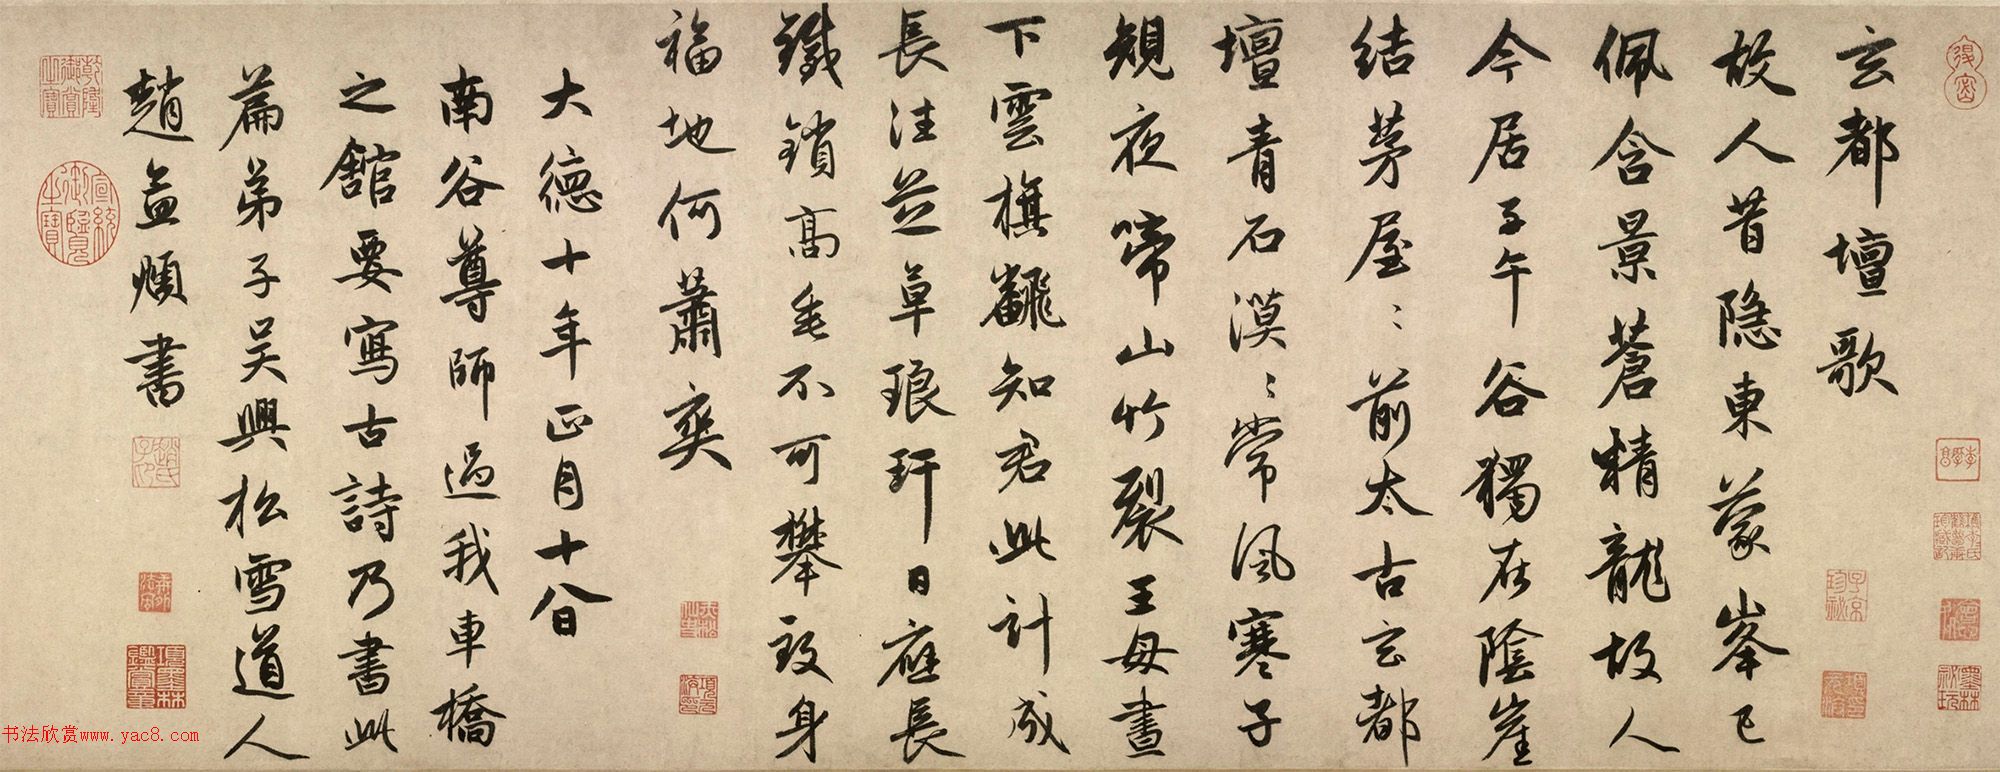 玄都壇歌
故人昔隱東蒙峯已
佩含景蒼精龍故人
今居子午谷獨在陰崖
結茅屋〻前太古玄都
壇青石漠〻常風寒子
規夜啼山竹裂王母晝
下雲旗飜知君此計成
長往芝草琅玕日應長
鐵鎖高垂不可攀致身
福地何蕭爽
大德十年正月十八日
南谷尊師過我車橋
之舘要寫古詩乃書此
篇弟子吳興松雪道人
趙孟頫書
宣統御覽之寶
項墨林鑑賞章
墨林秘玩
子京珍秘
书法欣赏www.yac8.com